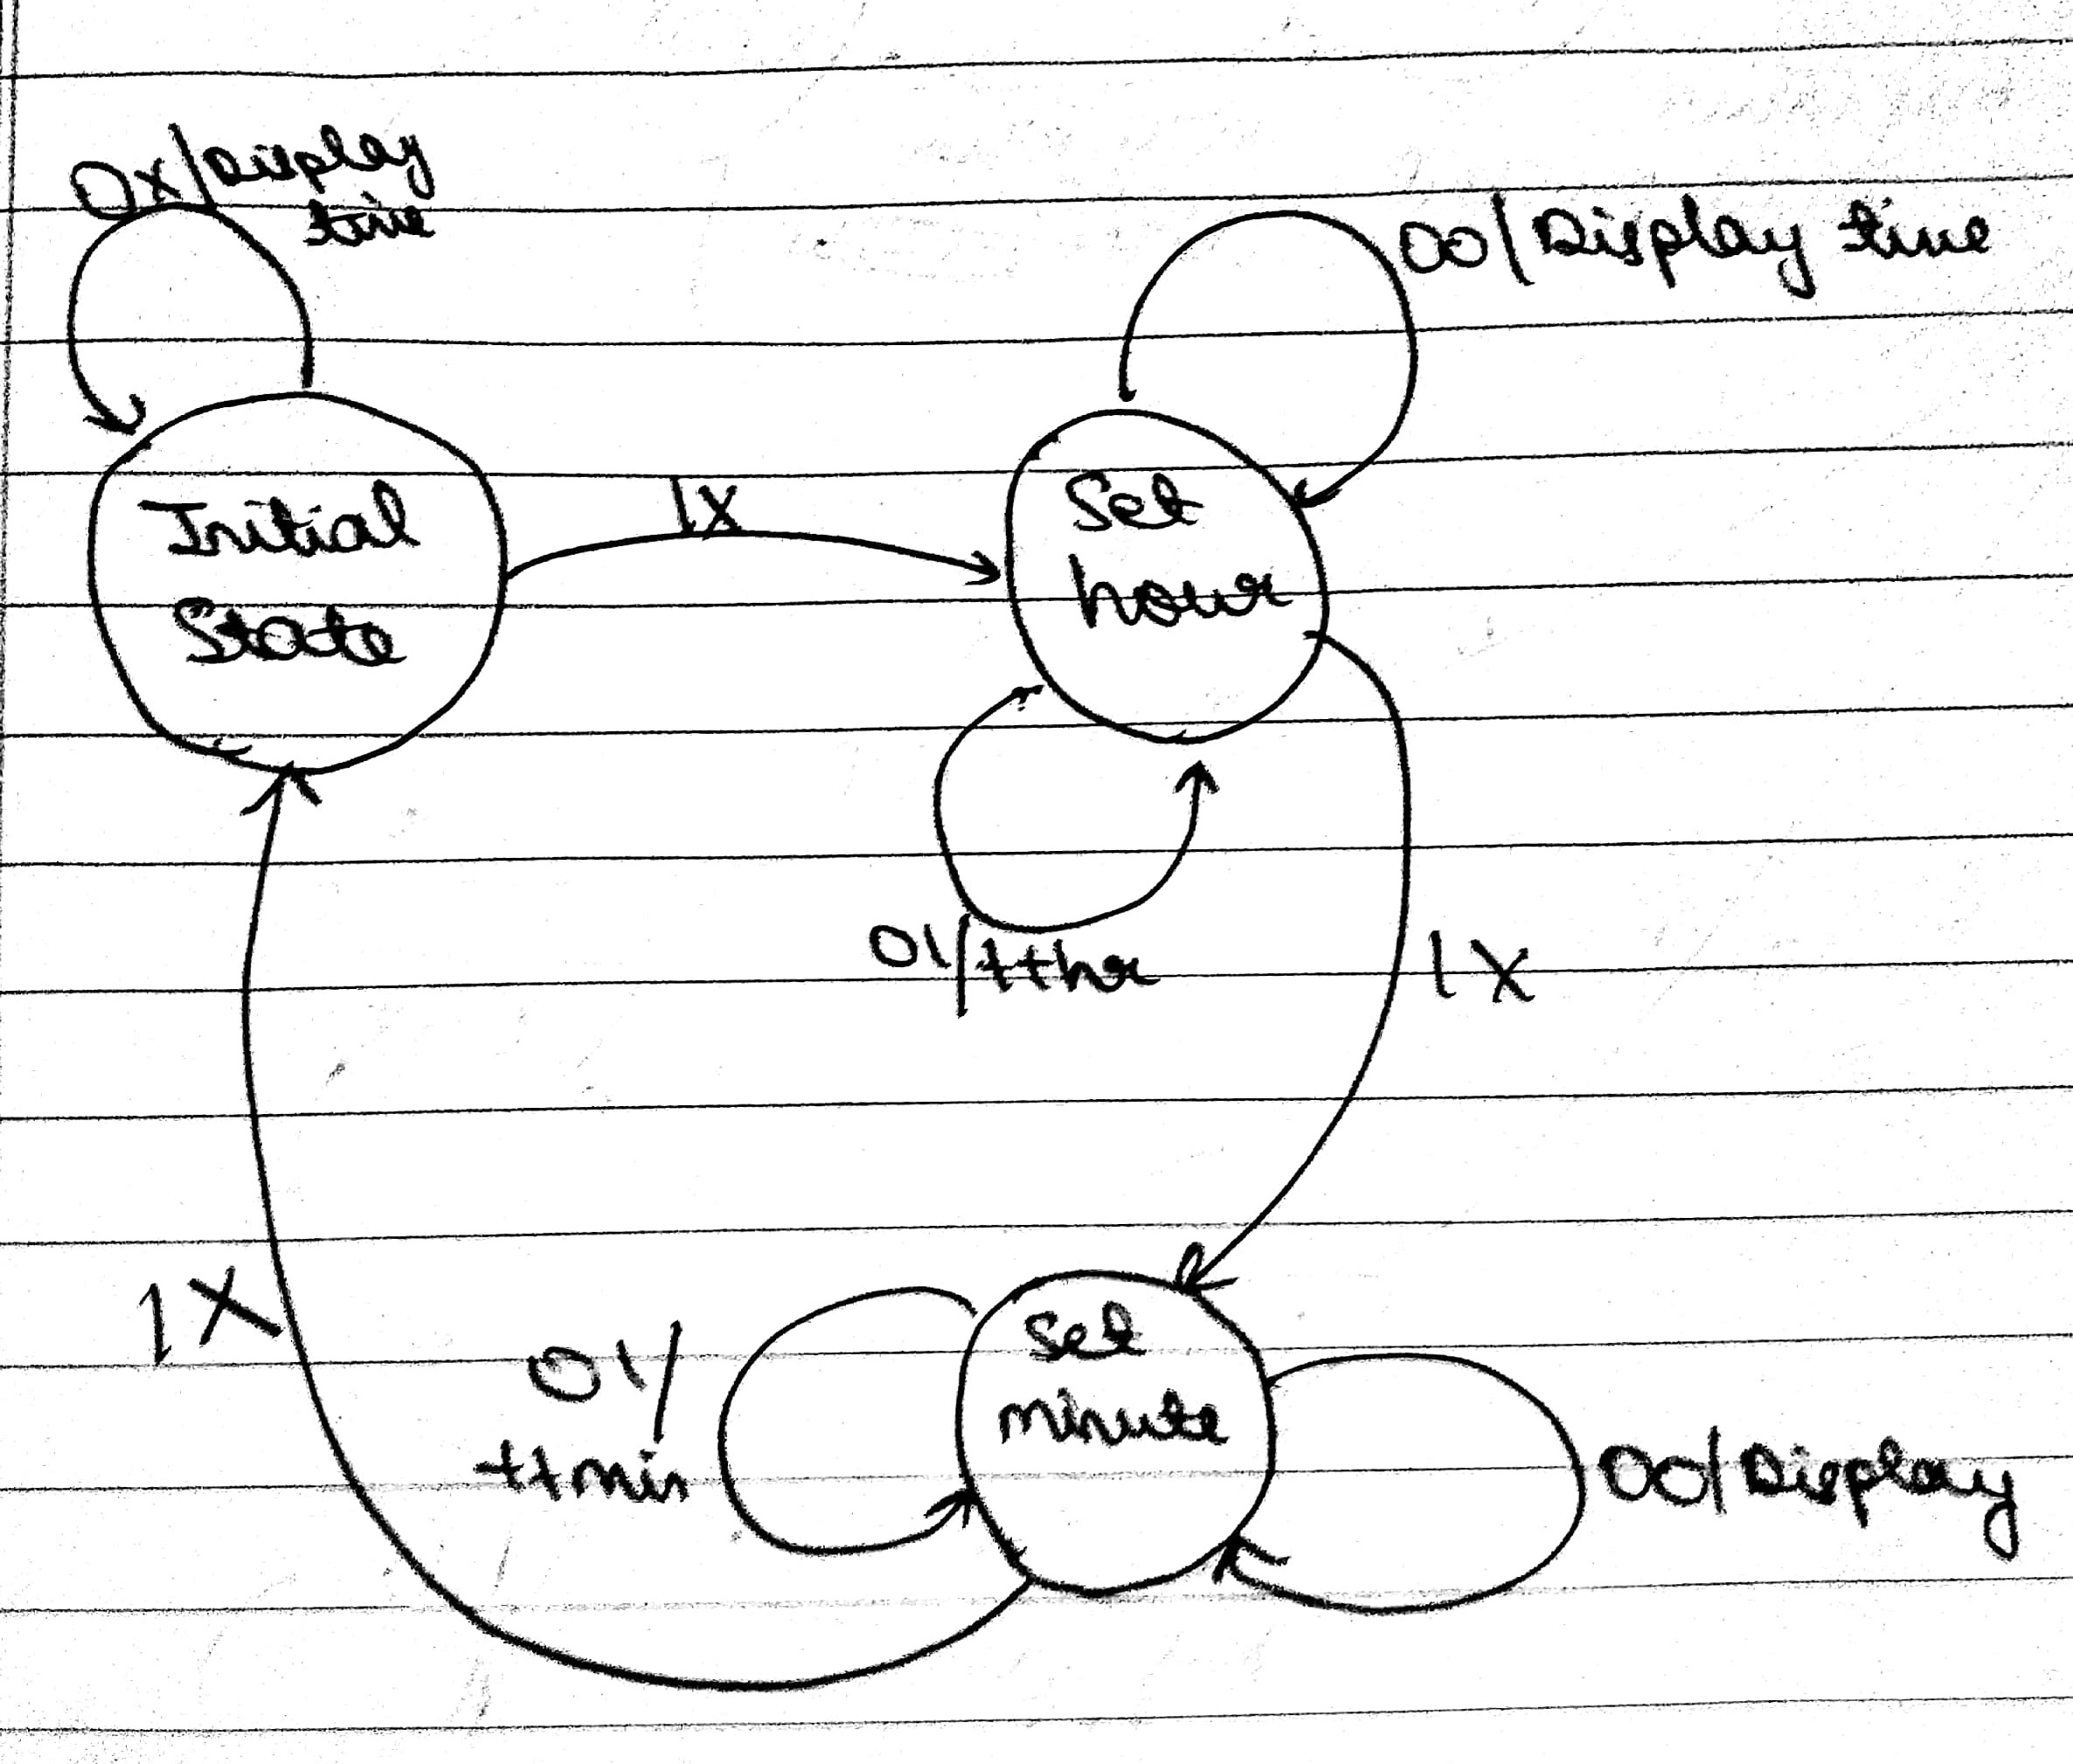 0X/Display
time
00/Display time
1X
Initial
State
Set
hour
01/++hr
1X
1X
Set
minute
01/
++min
00/Display